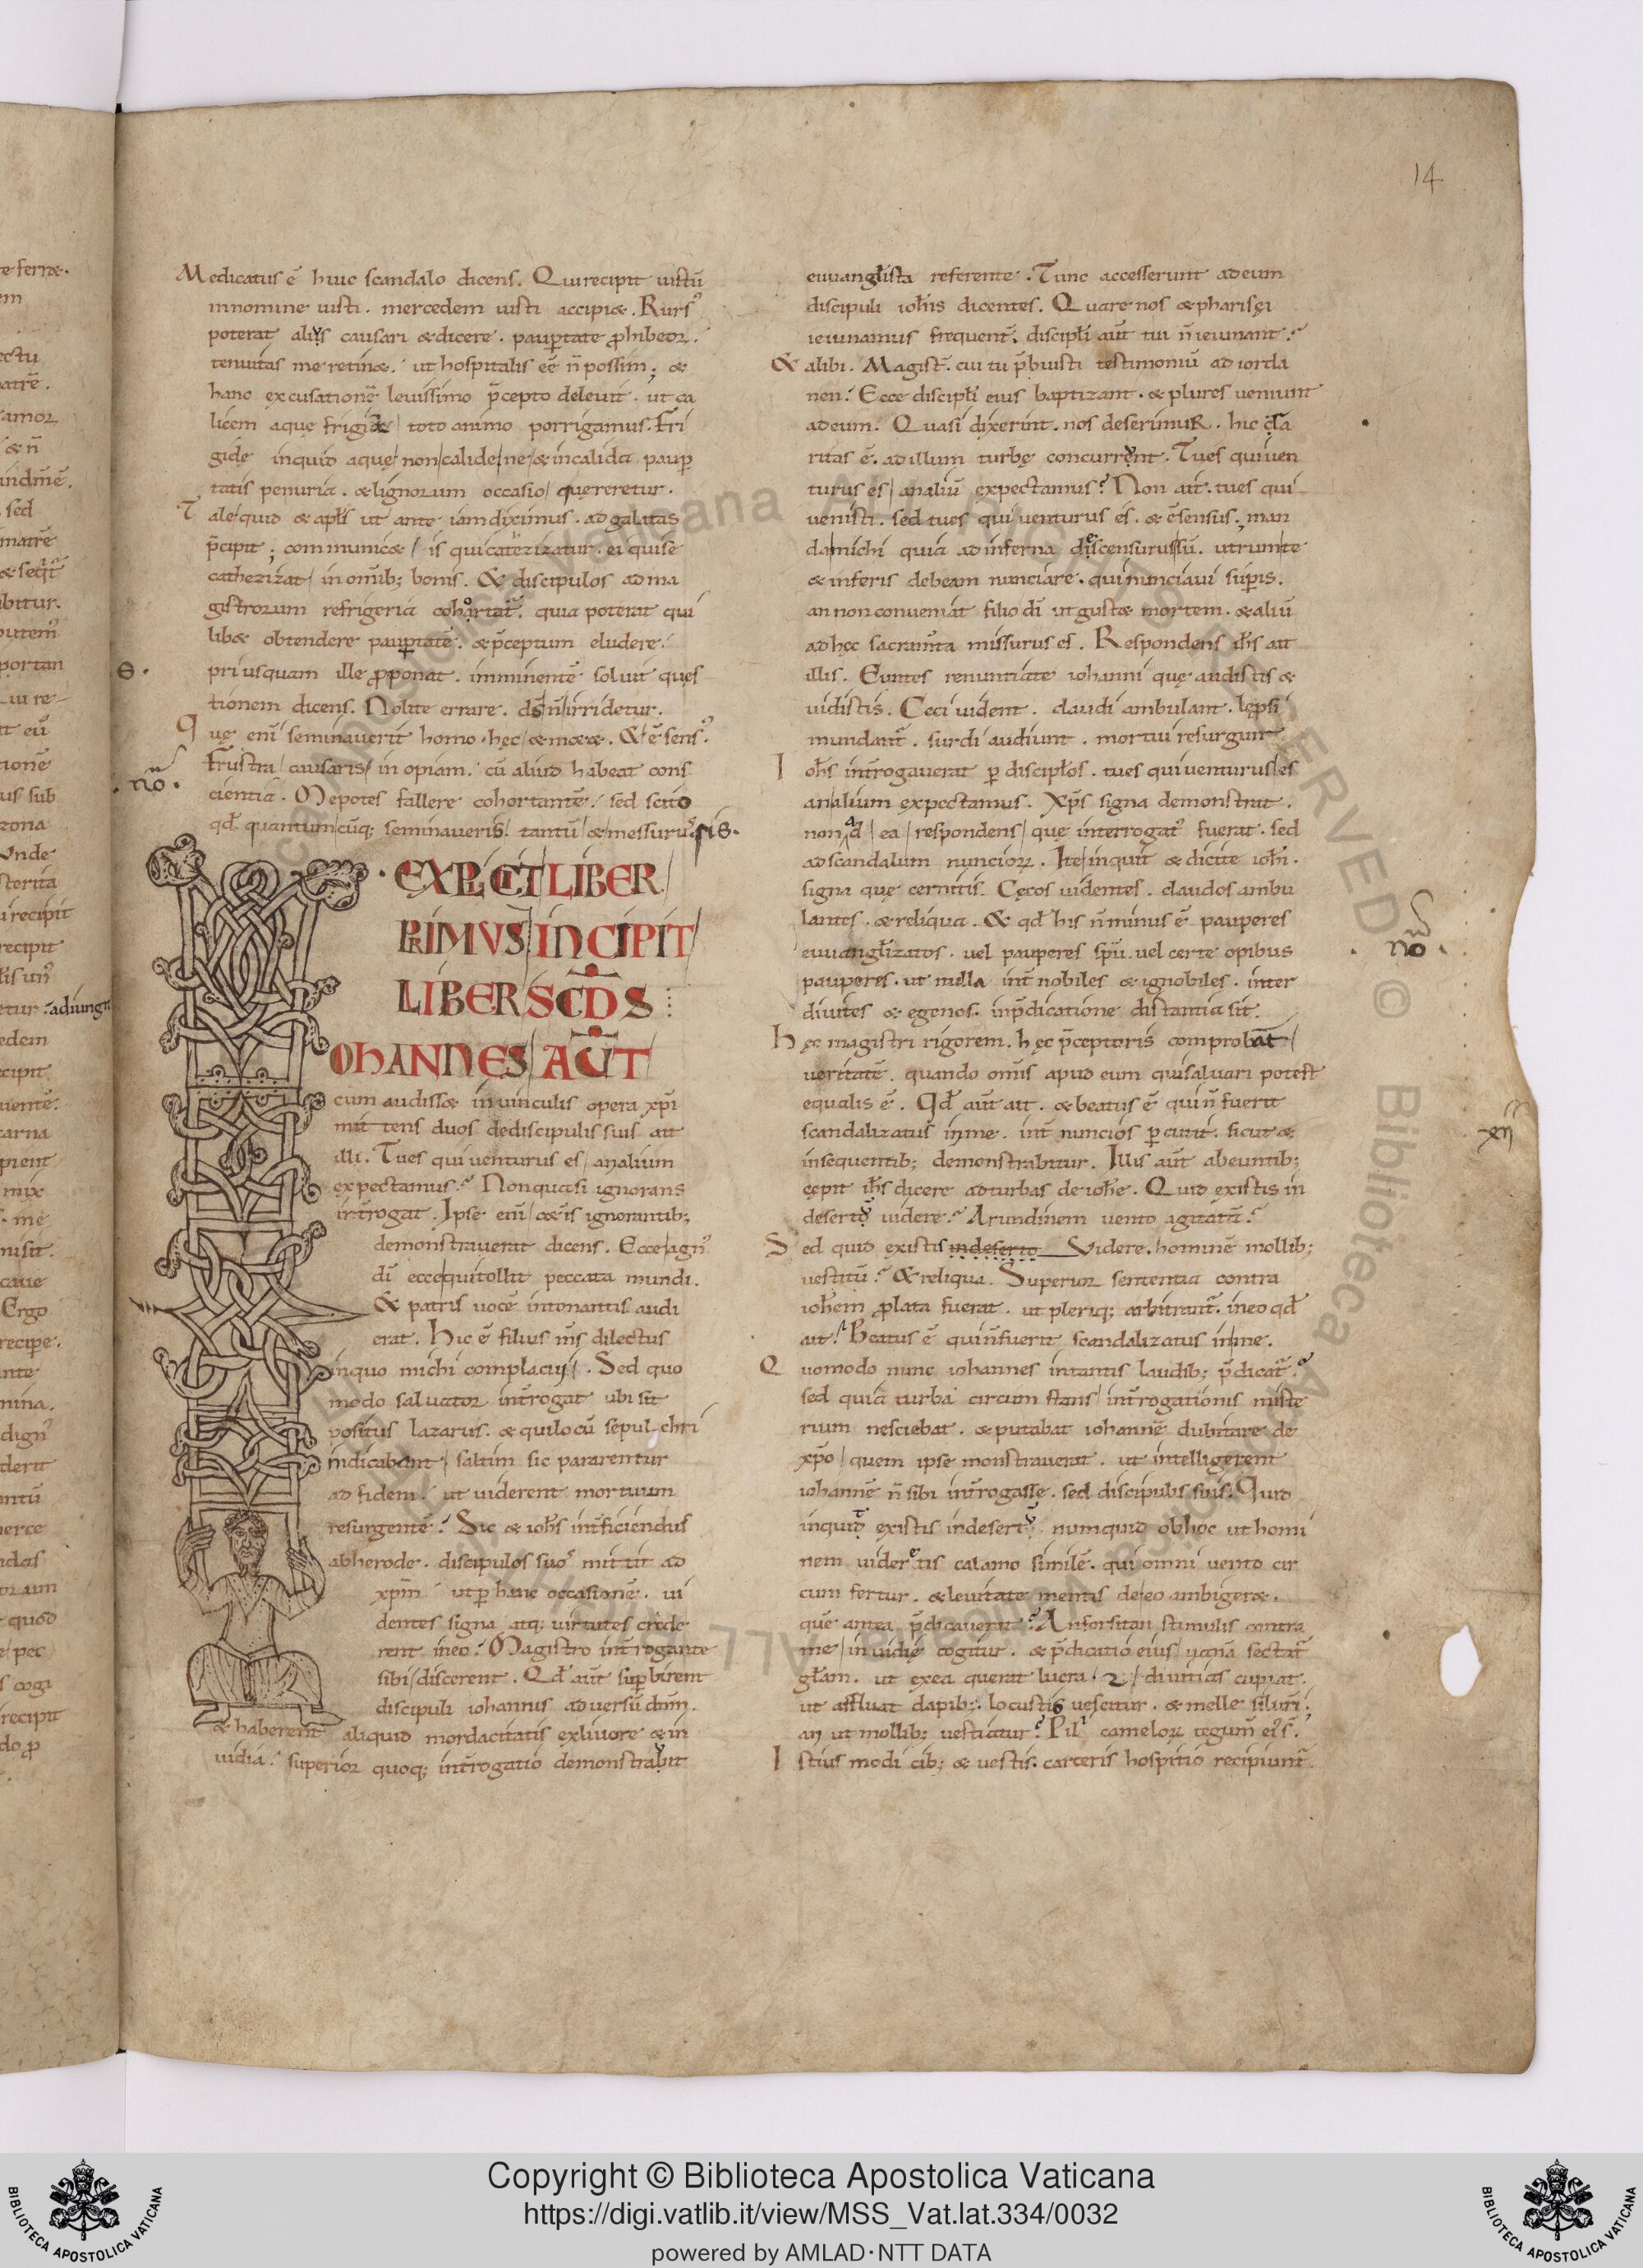 14
Medicatus ē huic scandalo dicens. Qui recipit iustū
innomine iusti. mercedem iusti accipi&. Rursꝰ
poterat aliꝰs causari & dicere. paup̱tate ꝓhibeor.
tenuitas me retin&. ut hospitalis eē n̄ possim; &
hanc excusationē leuissimo p̄cepto deleuit. ut ca
licem aquę frigidę toto animo porrigamus. Fri
gidę inquid aquę non calide ne & incalida paup̱
tatis penuria. & lignorum occasio quereretur.
Tale quid & apl̄s ut ante iam diximus. ad galatas
p̄cipit; communic& is qui catezizatur. ei qui se
cathezizat in om̄ib; bonis. & discipulos ad ma
gistrorum refrigeria cohortat̄. quia poterat qui
lib& obtendere paup̱tatē. & p̄ceptum eludere.
priusquam ille ꝓponat. imminentē soluit ques
tionem dicens. Nolite errare. ds̄ n̄ irridetur.
Quę enī seminauerit homo. hęc & met&. & ē sensꝰ.
Frustra causaris inopiam. cū aliud habeat cons
cientia. Me potes fallere cohortantē. sed scito
qd̄ quantumcūq; seminaueris. tantū & messurusͥ sis.
EXPLICIT LIBER
PRIMVS INCIPIT
LIBER SCDS
IOHANNES AUT
cum audiss& in uinculis opera xp̄i
mittens duos de discipulis suis ait
illi. Tu es qui uenturus es an alium
expectamus? Non quasi ignorans
int̄rogat. Ipse enī c&ęis ignorantib;
demonstrauerat dicens. Ecce agnꝰ
dī ecce qui tollit peccata mundi.
& patris uocē intonantis audi
erat. Hic ē filius m̄s dilectus
inquo michi complacui. Sed quo
modo saluator int̄rogat ubi sit
positus lazarus. & qui locū sepulchri
indicabant saltim sic pararentur
ad fidem. ut uiderent mortuum
resurgentē. Sic & ioh̄s int̄ficiendus
ab herode. discipulos suoꝰ mittit ad
xpm̄. ut p̱ hanc occasionē. ui
dentes signa atq; uirtutes crede
rent in eo. Magistro int̄rogante
sibi discerent. Qd̄ aūt sup̱birent
discipuli iohannis aduersū dn̄m.
& haberent aliquid mordacitatis ex liuore & in
uidia. superior quoq; int̄rogatio demonstrabit
euuangl̄ista referente. Tunc accesserunt ad eum
discipuli ioh̄is dicentes. Quare nos & pharisęi
ieiunamus frequent̄. discipl̄i aūt tui n̄ ieiunant?
& alibi. Magist̄. cui tu p̄buisti testimoniū ad iorda
nen. Ecce discipl̄i eius baptizant. & plures ueniunt
ad eum. Quasi dixerint. nos deserimuR. hic
ritas ē. ad illum turbę concurrunt. Tu es qui uen
turus es an aliū expectamus? Non ait. tu es qui
uenisti. sed tu es qui uenturus es. & ē sensus. man
da michi quia ad inferna discensurus sū. utrum te
& inferis debeam nunciare. qui nunciaui sup̱is.
an non conueniat filio dī ut gust& mortem. & aliū
ad hęc sacram̄ta missurus es. Respondens ih̄s ait
illis. Euntes renuntiate iohanni quę audistis &
uidistis. Ceci uident. claudi ambulant. lepsi
mundant̄. surdi audiunt. mortui resurgunt.
Ioh̄s int̄rogauerat p̱ discipl̄os. tu es qui uenturus es
an alium expectamus. Xp̄s signa demonstrat.
non ad ea respondens quę interrogatꝰ fuerat. sed
ad scandalum nunciorꝝ. Ite inquit & dicite ioh̄i.
signa quę cernitis. Cęcos uidentes. claudos ambu
lantes. & reliqua. & qd̄ his n̄ minus ē pauperes
euuangl̄izatos. uel pauperes spū. uel certe opibus
pauperes. ut nulla int̄ nobiles & ignobiles. inter
diuites & egenos. in p̄dicatione distantia sit.
Hęc magistri rigorem. hęc p̄ceptoris comprobat
ueritatē. quando om̄is apud eum qui saluari potest
equalis ē. Qd̄ aūt ait. & beatus ē qui n̄ fuerit
scandalizatus in me. int̄ nuncios p̱cutit. sicut &
in sequentib; demonstrabitur. Illis aūt abeuntib;
cępit ih̄s dicere ad turbas de ioh̄e. Quid existis in
deserto uidere? Arundinem uento agitatā?
Sed quid existis in deserto Videre. hominē mollib;
uestitū? & reliqua. Superior sententia contra
ioh̄em ꝓlata fuerat. ut pleriq; arbitrant̄. in eo qd̄
ait. Beatus ē qui n̄ fuerit scandalizatus in me.
Quomodo nunc iohannes in tantis laudib; p̄dicat̄?
sed quia turba circum stans int̄rogationis miste
rium nesciebat. & putabat iohannē dubitare de
xp̄o quem ipse monstrauerat. ut intelligerent
iohannē n̄ sibi int̄rogasse. sed discipulis suis. Quid
inquid existis in desertū numquid ob hoc ut homi
nem uideretis calamo similē. qui omni uento cir
cum fertur. & leuitate mentis de eo ambiger&.
quē antea p̄dicauerit? An forsitan stimulis contra
me inuidię cogitur. & p̄dicatio eius uanā sectat̄
gl̄am. ut ex ea querat lucra. diuitias cupiat.
ut affluat dapib;. locustis uescitur. & melle siluri;
an ut mollib; uestiatur? Pili camelorꝝ tegum̄ eiꝰ ē.
Istius modi cib; & uestis. carceris hospitio recipiunt̄
Copyright © Biblioteca Apostolica Vaticana
https://digi.vatlib.it/view/MSS_Vat.lat.334/0032
powered by AMLAD·NTT DATA
BIBLIOTECA APOSTOLICA VATICANA
BIBLIOTECA APOSTOLICA VATICANA